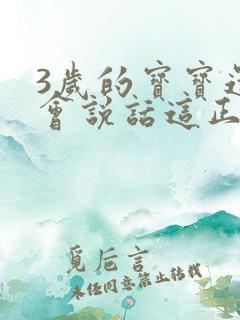 3歲的寶寶還
會說話這正
覓后言
未任同意禁止转载